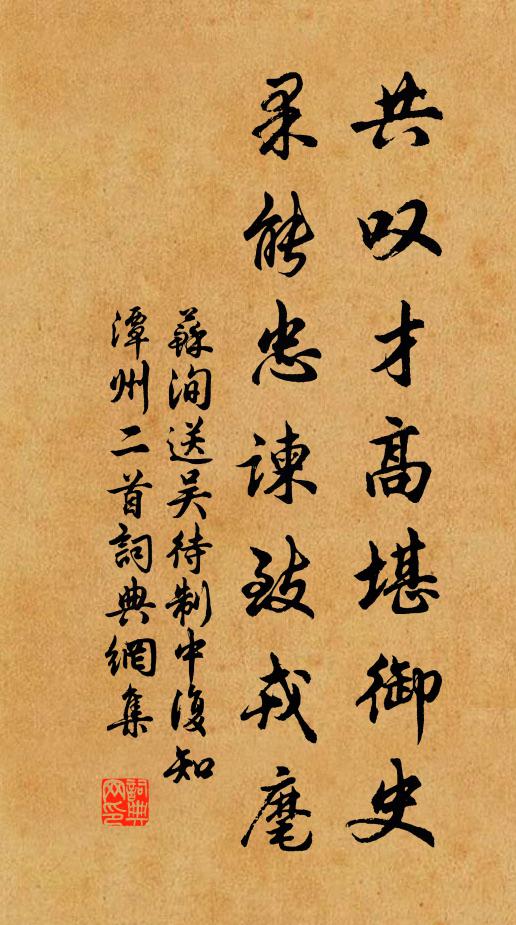 共叹才高堪御史
果能忠谏致戎麾
蘇洵送吴待制中復知
潭州二首詞典網集
詞典
网印